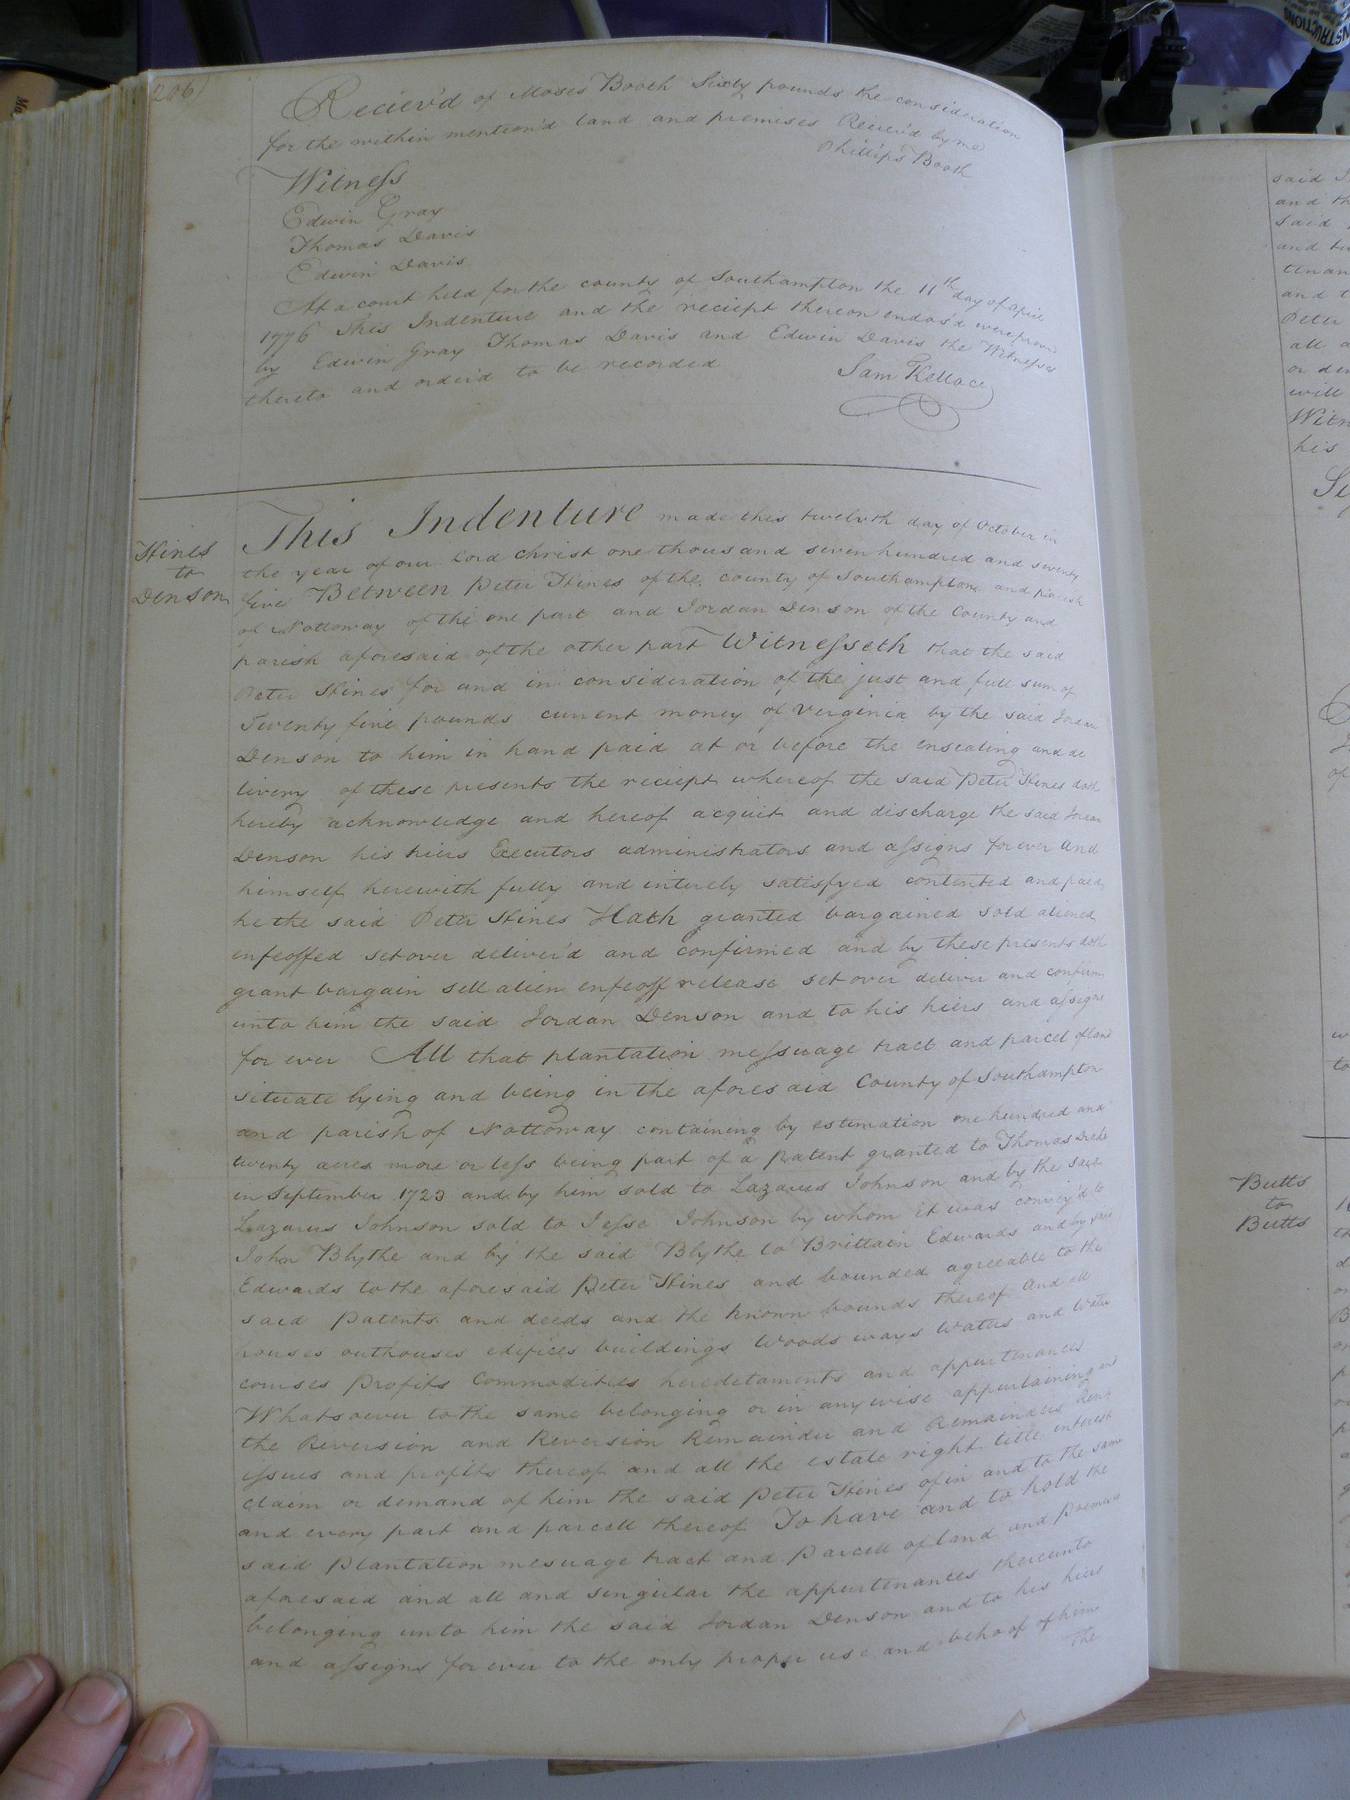 206
Reciev'd of Moses Booth Sixty pounds the consideration
for the within mention'd land and premises Reciev'd by me
Phillips Booth
Witness
Edwin Gray
Thomas Davis
Edwin Davis
At a court held for the county of Southampton the 11th day of april
1776 This Indenture and the reciept thereon endors'd were prov'd
by Edwin Gray Thomas Davis and Edwin Davis the Witnesses
thereto and order'd to be recorded
Sam Kello cc
Hines
to
Denson
This Indenture made this twelvth day of October in
the year of our Lord Christ one thousand seven hundred and seventy
five Between Peter Hines of the county of Southampton and parish
of Nottoway of the one part and Jordan Denson of the County and
parish aforesaid of the other part Witnesseth that the said
Peter Hines for and in consideration of the just and full sum of
Twenty five pounds current money of Verginia by the said Jordan
Denson to him in hand paid at or before the ensealing and de
livery of these presents the reciept whereof the said Peter Hines doth
hereby acknowledge and hereof acquit and discharge the said Jordan
Denson his hiers Executors administrators and assigns for ever and
himself herewith fully and interely satisfyed contented and paid
he the said Peter Hines Hath granted bargained sold aliened
enfeoffed set over deliver'd and confirmed and by these presents doth
grant bargain sell alien enfeoff release set over deliver and confirm
unto him the said Jordan Denson and to his hiers and assigns
for ever All that plantation messuage tract and parcel of land
situate lying and being in the aforesaid County of Southampton
and parish of Nottoway containing by estimation one hundred and
twenty acres more or less being part of a patent granted to Thomas Drake
in September 1723 and by him sold to Lazarus Johnson and by the said
Lazarus Johnson sold to Jesse Johnson by whom it was convey'd to
John Blythe and by the said Blythe to Brittain Edwards and by said
Edwards to the aforesaid Peter Hines and bounded agreeable to the
said Patents and deeds and the known bounds thereof and all
houses outhouses edifices buildings Woods ways Waters and Water
courses Profits Commodities heredetaments and appurtenances
Whatsoever to the same belonging or in any wise appertaining and
the Reversion and Reversion Remainder and Remainders Rents
issues and profits thereof and all the estate right title interest
claim or demand of him the said Peter Hines of in and to the same
and every part and parcell thereof To have and to hold the
said Plantation mesuage tract and Parcell of land and Premises
aforesaid and all and singular the appurtenances thereunto
belonging unto him the said Jordan Denson and to his hiers
and assigns for ever to the only proper use and behoof of him
The
said
and
Said
Peter
will
his
Butts
to
Butts